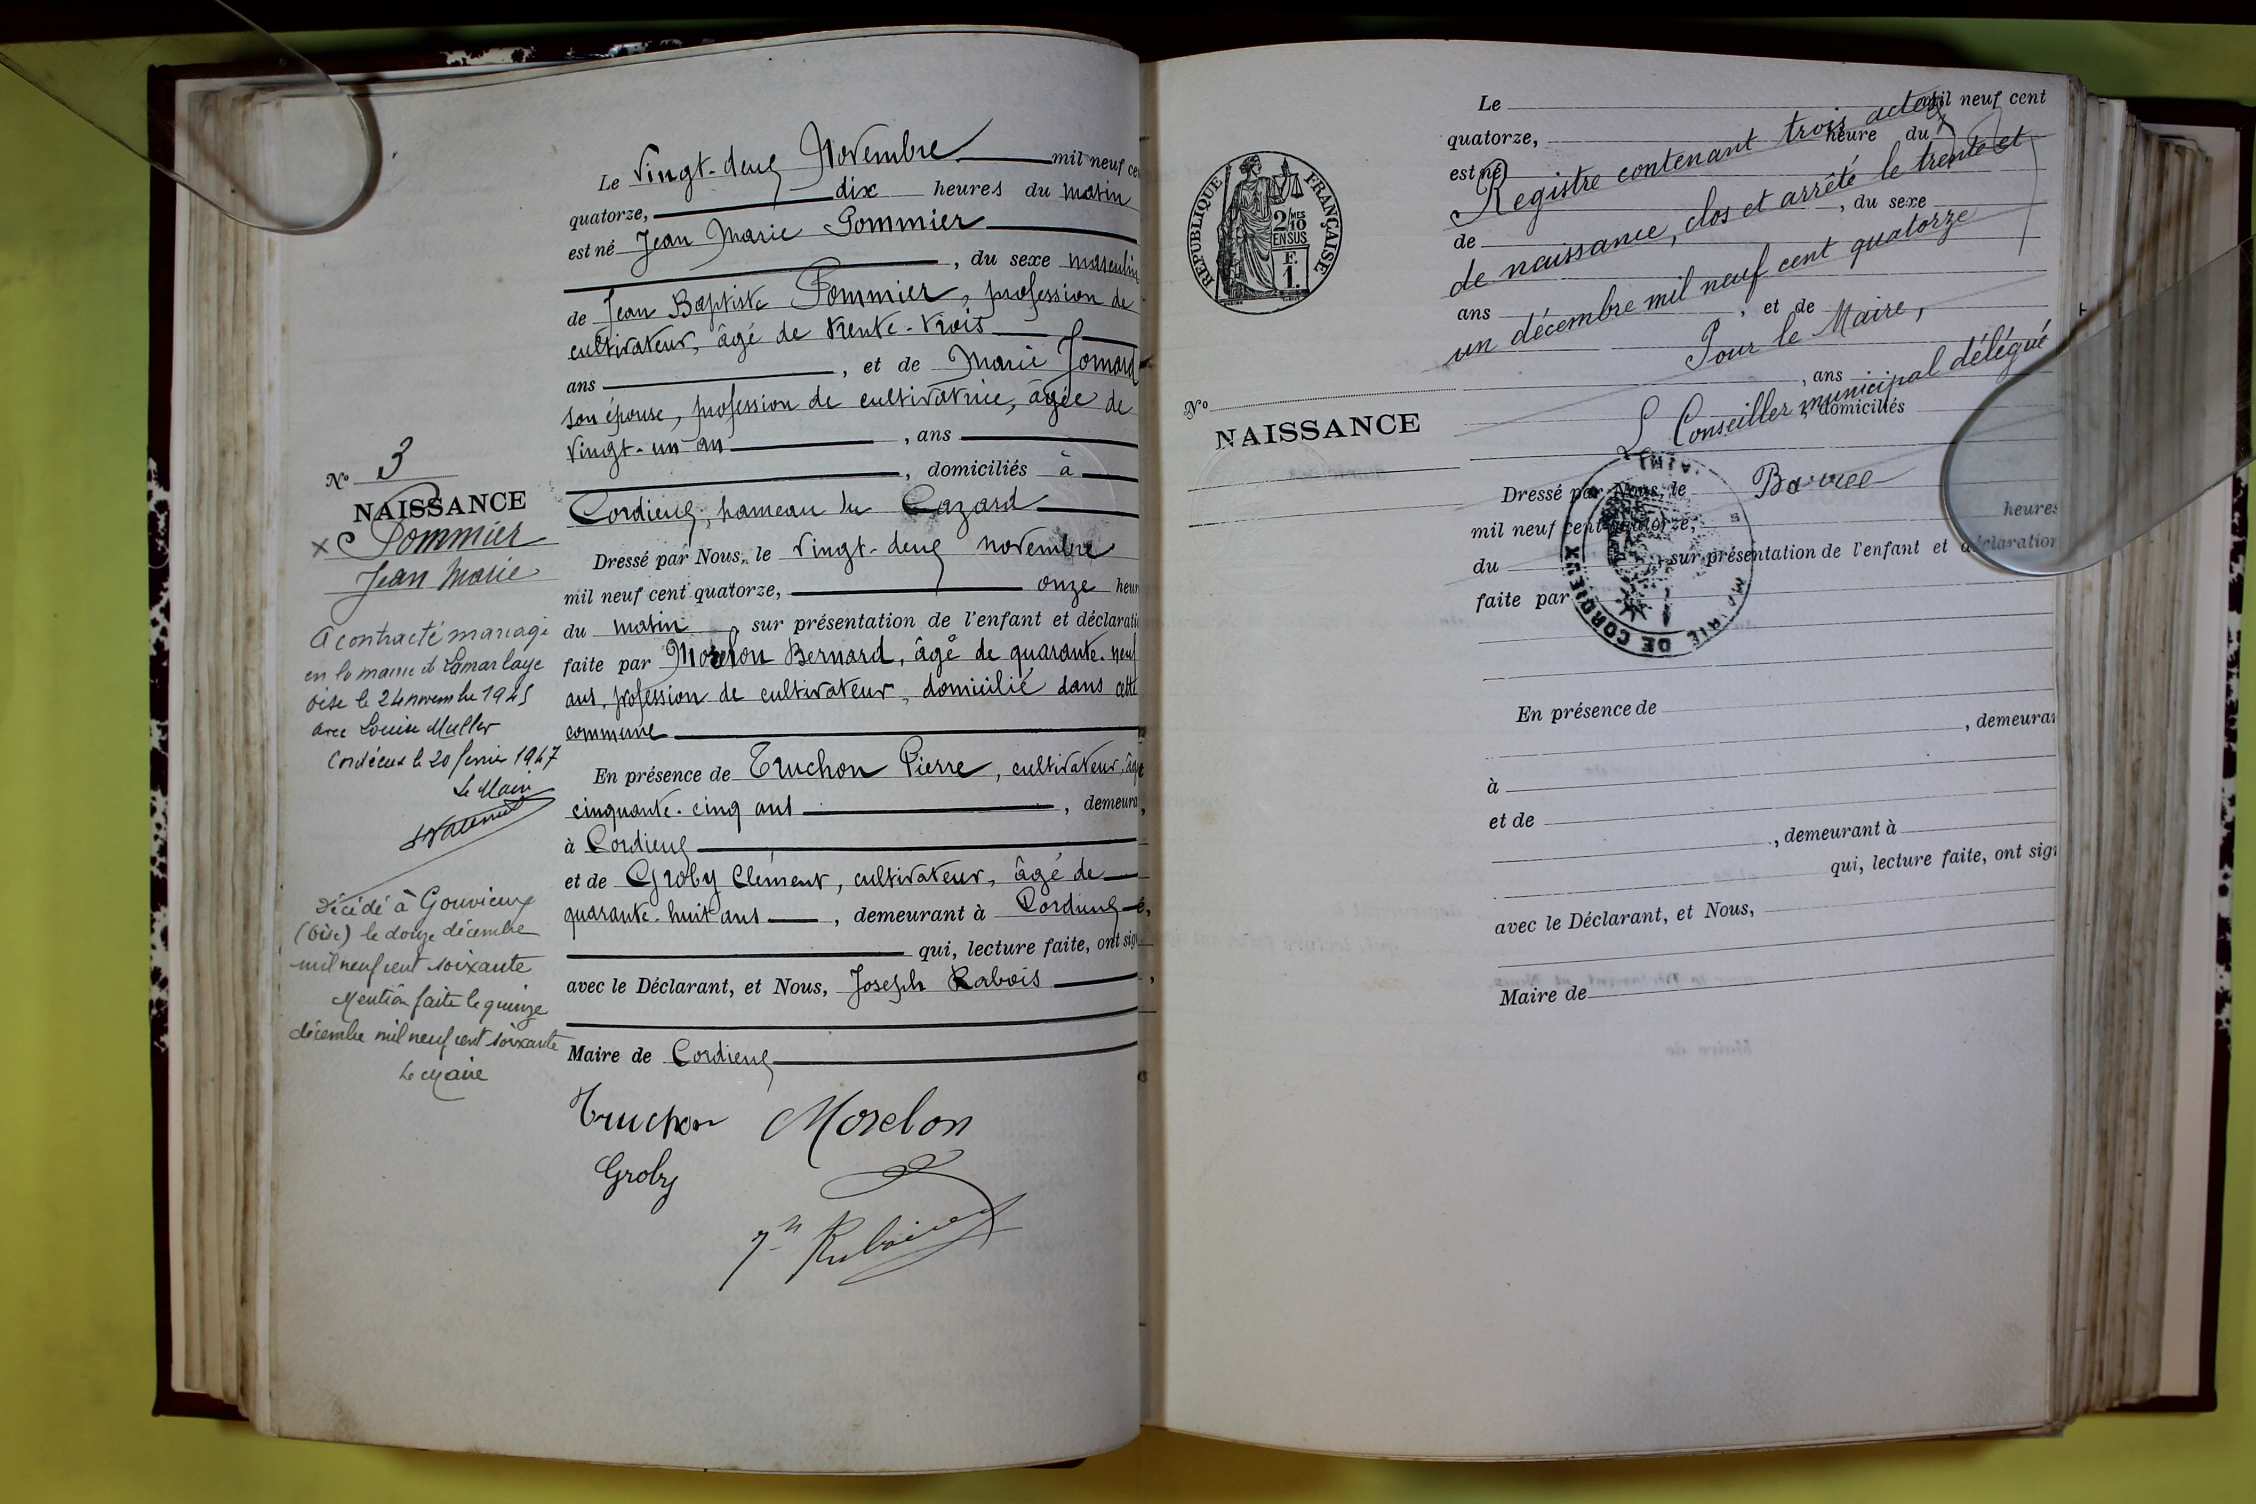 Le vingt-deux Novembre mil neuf ce
quatorze, dix heures du matin
est né Jean Marie Pommier
, du sexe masculin
de Jean Baptiste Pommier, profession de
cultivateur, âgé de trente-trois
ans , et de Marie Jomard
son épouse, profession de cultivatrice, âgée de
vingt-un an , ans
, domiciliés à
Cordieux, hameau du Cazard
Dressé par Nous, le vingt-deux novembre
mil neuf cent quatorze, onze heur
du matin, sur présentation de l'enfant et déclarati
faite par Morelon Bernard, âgé de quarante-neuf
ans, profession de cultivateur, domicilié dans cette
commune
En présence de Truchon Pierre, cultivateur, âgé
cinquante-cinq ans , demeura
à Cordieux
et de Groby Clément, cultivateur, âgé de
quarante-huit ans , demeurant à Cordieux
qui, lecture faite, ont sig
avec le Déclarant, et Nous, Joseph Rabois
Maire de Cordieux
Truchon Morelon
Groby
Jh Rabois
No 3
NAISSANCE
x Pommier
Jean Marie
A contracté mariage
en la mairie de Lamorlaye
Oise le 24 novembre 1945
avec Louise Muller
Cordieux le 20 février 1947
Le Maire
Décédé à Gouvieux
(Oise) le douze décembre
mil neuf cent soixante
Mention faite le quinze
décembre mil neuf cent soixante
Le Maire
RÉPUBLIQUE FRANÇAISE
2/MES
10
EN SUS
F.
1.
No
NAISSANCE
Le mil neuf cent
quatorze, heure du
est né
de , du sexe
ans , et de
, ans
, domiciliés
Registre contenant trois actes
de naissance, clos et arrêté le trente et
un décembre mil neuf cent quatorze
Pour le Maire,
L Conseiller municipal délégué
Dressé par Nous, le
mil neuf cent quatorze, heures
du , sur présentation de l'enfant et déclaration
faite par
MAIRIE DE CORDIEUX (AIN)
En présence de
, demeuran
à
et de
, demeurant à
qui, lecture faite, ont sign
avec le Déclarant, et Nous,
Maire de